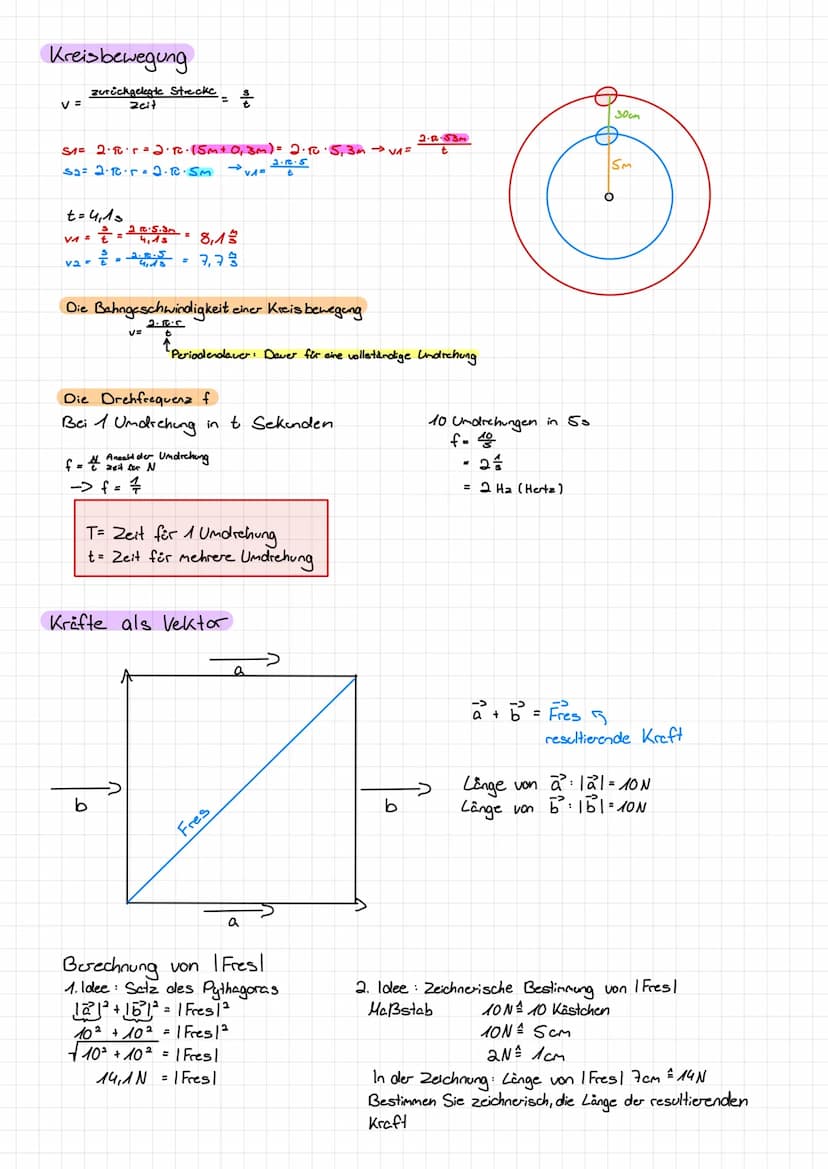 Kreisbewegung
v = zurückgelegte Strecke / Zeit = s/t
30cm
5m
s1= 2·π·r = 2·π·(5m+0,3m) = 2·π·5,3m → v1= 2·π·53m / t
s2= 2·π·r = 2·π·5m → v1= 2·π·5 / t
t=4,1s
v1 = s/t = 2π·5.3m / 4,1s = 8,1 m/s
v2 = s/t = 2·π·5 / 4,1s = 7,7 m/s
Die Bahngeschwindigkeit einer Kreisbewegung
v= 2·π·r / t
Periodendauer: Dauer für eine vollständige Umdrehung
Die Drehfrequenz f
Bei 1 Umdrehung in t Sekunden
f = N/t Anzahl der Umdrehung / Zeit für N
-> f = 1/T
10 Umdrehungen in 5s
f = 10/5
= 2 1/s
= 2 Hz (Hertz)
T= Zeit für 1 Umdrehung
t= Zeit für mehrere Umdrehung
Kräfte als Vektor
a
b
Fres
b
a
a + b = Fres
resultierende Kraft
Länge von a : |a| = 10N
Länge von b : |b| = 10N
Berechnung von |Fres|
1. Idee: Satz des Pythagoras
|a|² + |b|² = |Fres|²
10² + 10² = |Fres|²
√10² + 10² = |Fres|
14,1N = |Fres|
2. Idee: Zeichnerische Bestimnung von |Fres|
Maßstab 10N ≙ 10 Kästchen
10N ≙ 5cm
2N ≙ 1cm
In der Zeichnung: Länge von |Fres| 7cm ≙ 14N
Bestimmen Sie zeichnerisch, die Länge der resultierenden
Kraft